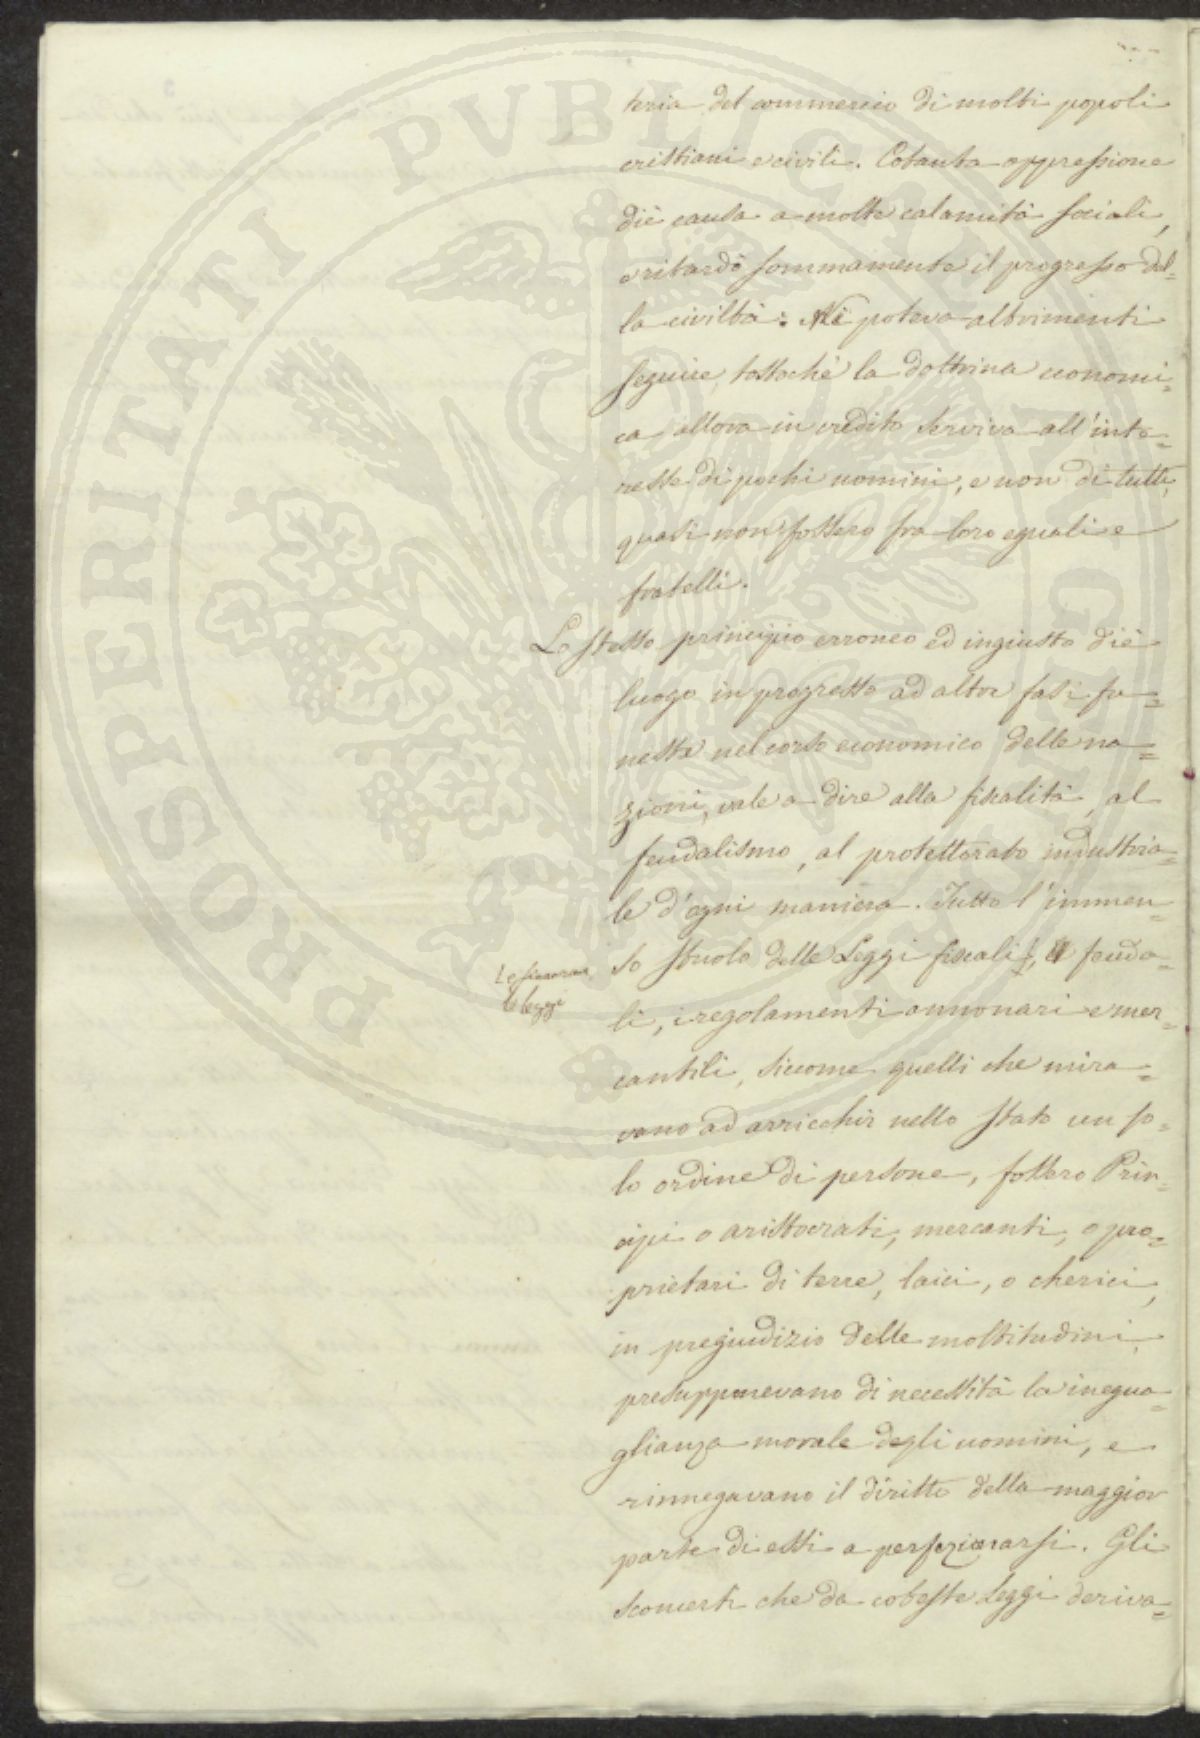 teria del commercio di molti popoli
cristiani e civili. Cotanta oppressione
diè causa a molte calamità sociali,
e ritardò sommamente il progresso del=
la civiltà: Nè poteva altrimenti
seguire, tostochè la dottrina economi=
ca allora in credito serviva all'inte=
resse di pochi uomini, e non di tutti,
quasi non fossero fra loro eguali e
fratelli.
Lo stesso principio erroneo ed ingiusto diè
luogo in progresso ad altre fasi fu=
neste nel corso economico delle na=
zioni, vale a dire alla fiscalità, al
feudalismo, al protettorato industria=
le d'ogni maniera. Tutto l'immen=
so stuolo delle Leggi fiscali, e feuda=
li, i regolamenti annonari e mer=
cantili, siccome quelli che mira=
vano ad arricchir nello Stato un so=
lo ordine di persone, fossero Prin=
cipi o aristocrati, mercanti, o pro=
prietari di terre, laici, o cherici,
in pregiudizio delle moltitudini,
presupponevano di necessità la inegua=
glianza morale degli uomini, e
rinnegavano il diritto della maggior
parte di essi a perfezionarsi. Gli
sconcerti che da coteste Leggi deriva=
le leggi
PROSPERITATI PVBLICAE